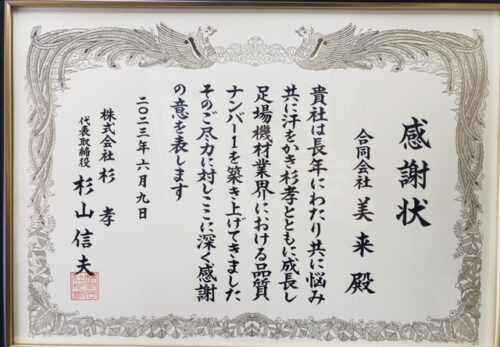 感謝状
合同会社 美来 殿
貴社は長年にわたり共に悩み
共に汗をかき杉孝とともに成長し
足場機材業界における品質
ナンバー1を築き上げてきました
そのご尽力に対しここに深く感謝
の意を表します
二〇二三年六月九日
株式会社 杉孝
代表取締役 杉山信夫